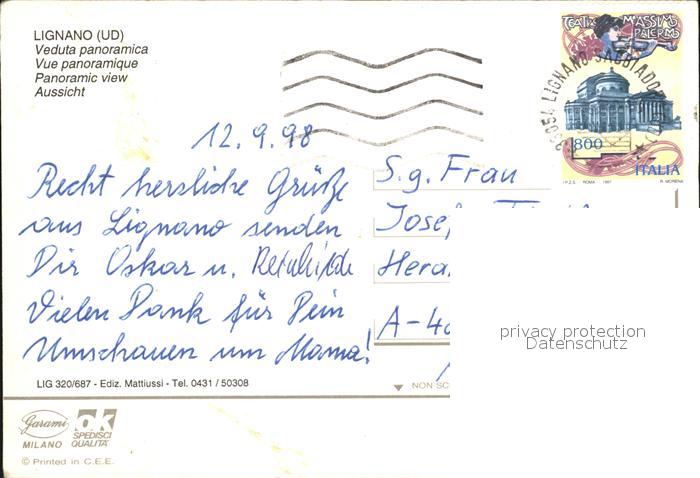 LIGNANO (UD)
Veduta panoramica
Vue panoramique
Panoramic view
Aussicht
TEATRO MASSIMO
PALERMO
33054 LIGNANO SABBIADORO
800
ITALIA
I.P.Z.S. ROMA 1997 R. MORENA
12.9.98
Recht herzliche Grüße
aus Lignano senden
Dir Oskar u.
Vielen Dank für Dein
Umschauen um Mama!
S.g. Frau
A-4
privacy protection
Datenschutz
LIG 320/687 - Ediz. Mattiussi - Tel. 0431 / 50308
NON SC
Garami
MILANO
ok
SPEDISCI
QUALITÀ
© Printed in C.E.E.